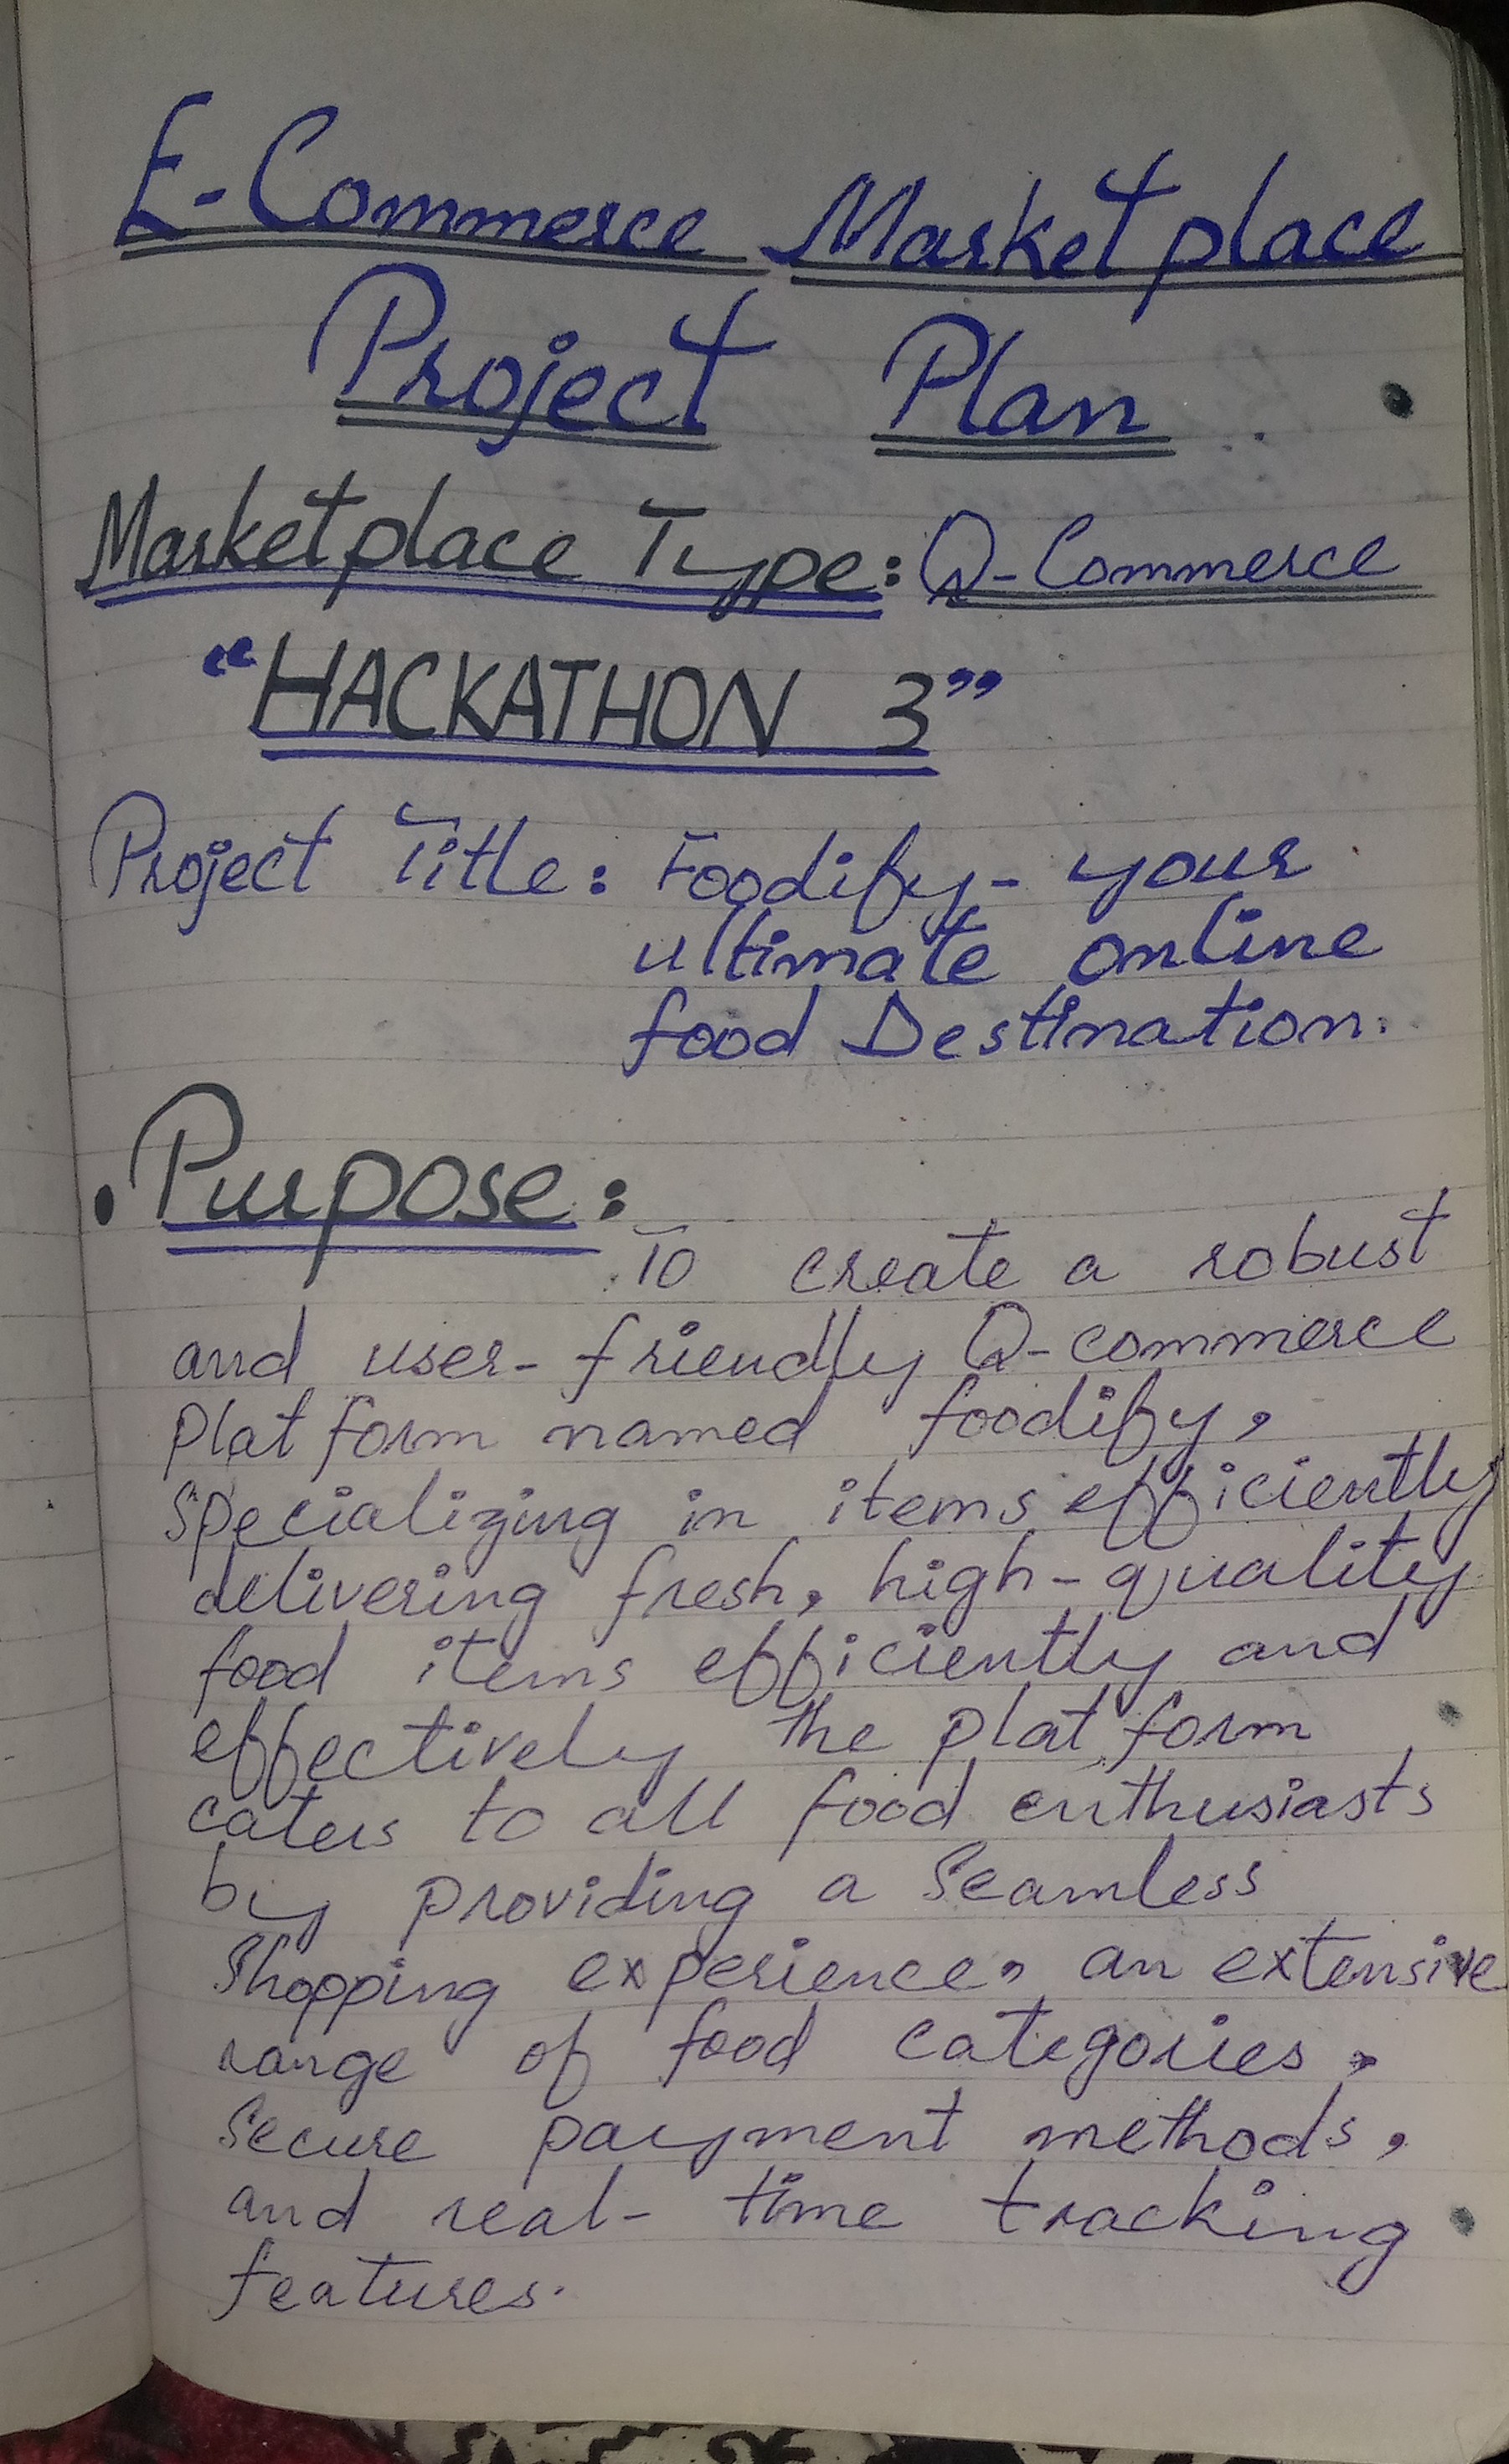 E-Commerce Marketplace
Project Plan
Marketplace Type: Q-Commerce
"HACKATHON 3"
Project Title: Foodify- your
ultimate online
food Destination.
• Purpose:
To create a robust
and user-friendly Q-commerce
Platform named foodify,
specializing in items efficiently
delivering fresh, high-quality
food items efficiently and
effectively the platform
caters to all food enthusiasts
by providing a seamless
Shopping experience, an extensive
range of food categories,
Secure payment methods,
and real-time tracking
features.